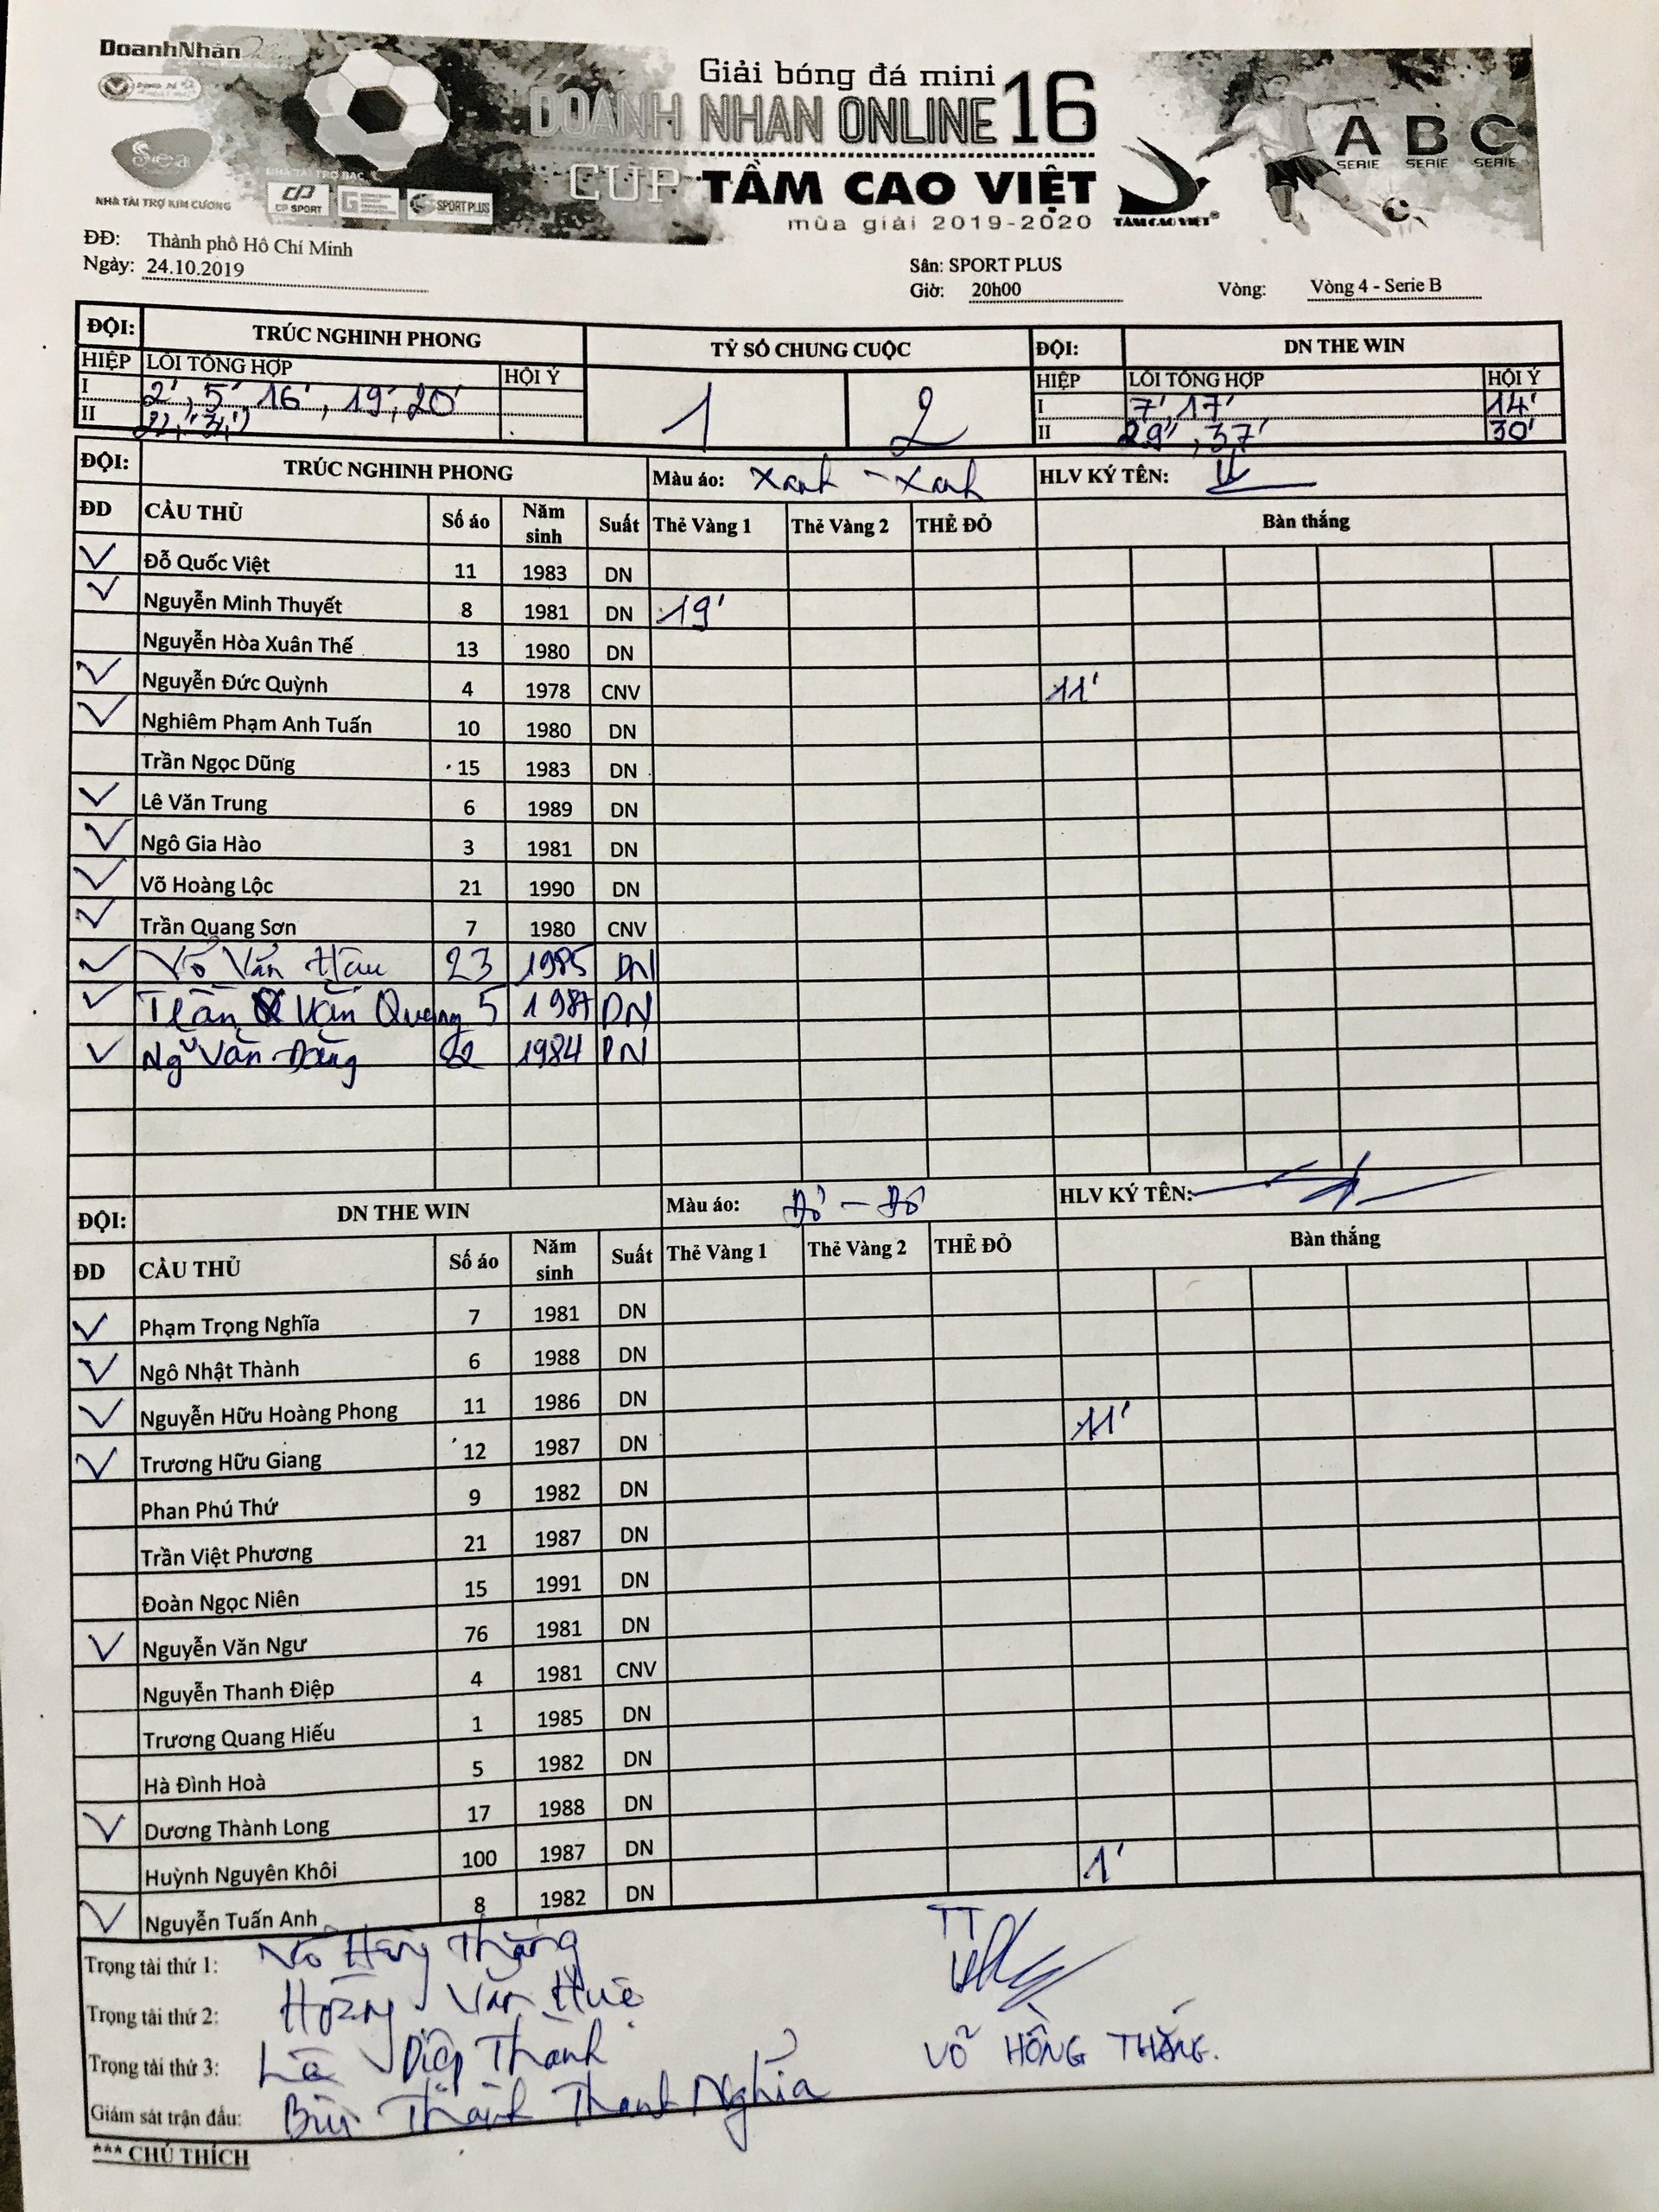 DoanhNhân Online
Giải bóng đá mini
DOANH NHAN ONLINE 16
CUP TẦM CAO VIỆT
mùa giải 2019-2020
Sea
NHÀ TÀI TRỢ KIM CƯƠNG
NHÀ TÀI TRỢ BẠC
CP SPORT
SPORT PLUS
TẦM CAO VIỆT®
A SERIE B SERIE C SERIE
ĐĐ: Thành phố Hồ Chí Minh
Ngày: 24.10.2019
Sân: SPORT PLUS
Giờ: 20h00 Vòng: Vòng 4 - Serie B
ĐỘI: TRÚC NGHINH PHONG TỶ SỐ CHUNG CUỘC ĐỘI: DN THE WIN
HIỆP LỖI TỔNG HỢP HỘI Ý 1 2 HIỆP LỖI TỔNG HỢP HỘI Ý
I 2', 5', 16', 19', 20' I 7', 17' 14'
II II 29', 37' 30'
ĐỘI: TRÚC NGHINH PHONG Màu áo: Xanh - Xanh HLV KÝ TÊN:
ĐD CẦU THỦ Số áo Năm sinh Suất Thẻ Vàng 1 Thẻ Vàng 2 THẺ ĐỎ Bàn thắng
Đỗ Quốc Việt 11 1983 DN
Nguyễn Minh Thuyết 8 1981 DN 19'
Nguyễn Hòa Xuân Thế 13 1980 DN
Nguyễn Đức Quỳnh 4 1978 CNV 11'
Nghiêm Phạm Anh Tuấn 10 1980 DN
Trần Ngọc Dũng 15 1983 DN
Lê Văn Trung 6 1989 DN
Ngô Gia Hào 3 1981 DN
Võ Hoàng Lộc 21 1990 DN
Trần Quang Sơn 7 1980 CNV
Võ Văn Hậu 23 1985 DN
Trần Văn Quang 5 1987 DN
Ng Văn Đăng 22 1984 DN
ĐỘI: DN THE WIN Màu áo: Đỏ - Đỏ HLV KÝ TÊN:
ĐD CẦU THỦ Số áo Năm sinh Suất Thẻ Vàng 1 Thẻ Vàng 2 THẺ ĐỎ Bàn thắng
Phạm Trọng Nghĩa 7 1981 DN
Ngô Nhật Thành 6 1988 DN
Nguyễn Hữu Hoàng Phong 11 1986 DN 11'
Trương Hữu Giang 12 1987 DN
Phan Phú Thứ 9 1982 DN
Trần Việt Phương 21 1987 DN
Đoàn Ngọc Niên 15 1991 DN
Nguyễn Văn Ngư 76 1981 DN
Nguyễn Thanh Điệp 4 1981 CNV
Trương Quang Hiếu 1 1985 DN
Hà Đình Hoà 5 1982 DN
Dương Thành Long 17 1988 DN
Huỳnh Nguyên Khôi 100 1987 DN
Nguyễn Tuấn Anh 8 1982 DN 1'
Trọng tài thứ 1: Võ Hồng Thắng TT
Trọng tài thứ 2: Hoàng Văn Huệ
Trọng tài thứ 3: Lê Diệp Thành VÕ HỒNG THẮNG.
Giám sát trận đấu: Bùi Thành Thanh Nghĩa
*** CHÚ THÍCH